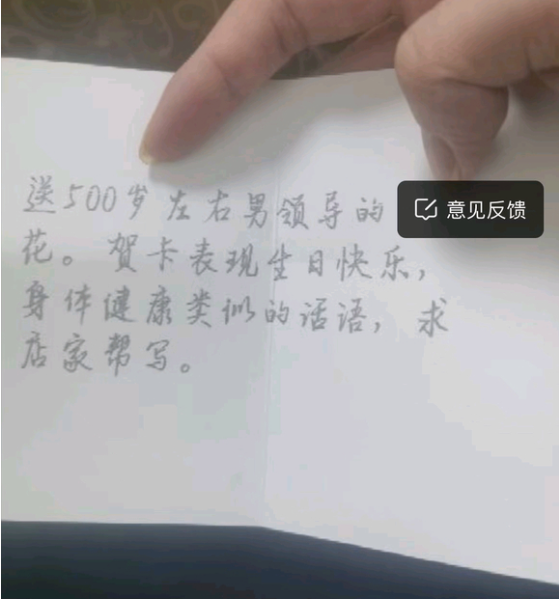 送500岁左右男领导的
花。贺卡表现生日快乐,
身体健康类似的话语,求
店家帮写。
意见反馈